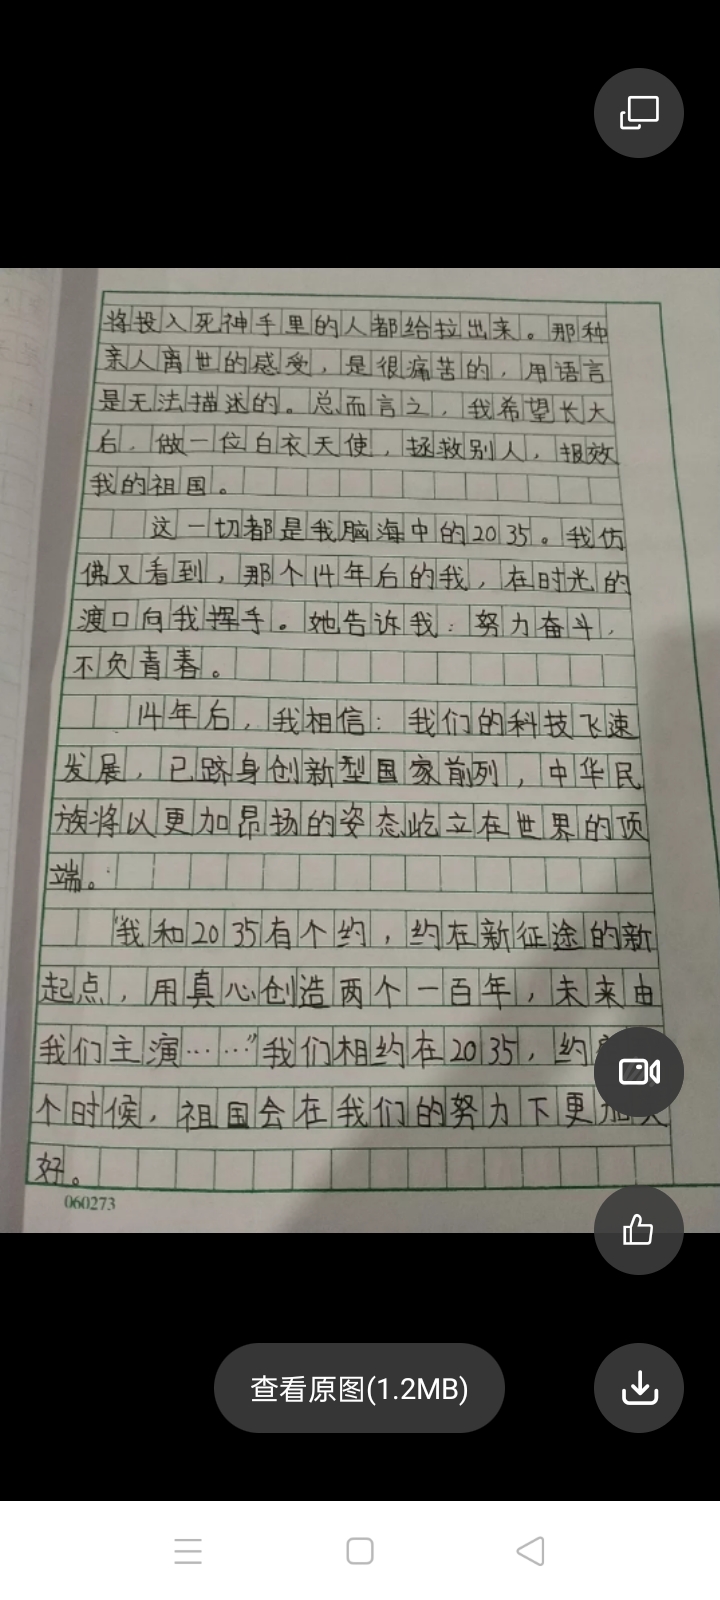 将投入死神手里的人都给拉出来。那种
亲人离世的感受，是很痛苦的，用语言
是无法描述的。总而言之，我希望长大
后，做一位白衣天使，拯救别人，报效
我的祖国。
这一切都是我脑海中的2035。我仿
佛又看到，那个14年后的我，在时光的
渡口向我挥手。她告诉我：努力奋斗，
不负青春。
14年后，我相信：我们的科技飞速
发展，已跻身创新型国家前列，中华民
族将以更加昂扬的姿态屹立在世界的顶
端。
“我和2035有个约，约在新征途的新
起点，用真心创造两个一百年，未来由
我们主演……”我们相约在2035，约
个时候，祖国会在我们的努力下更加
好。
060273
查看原图(1.2MB)